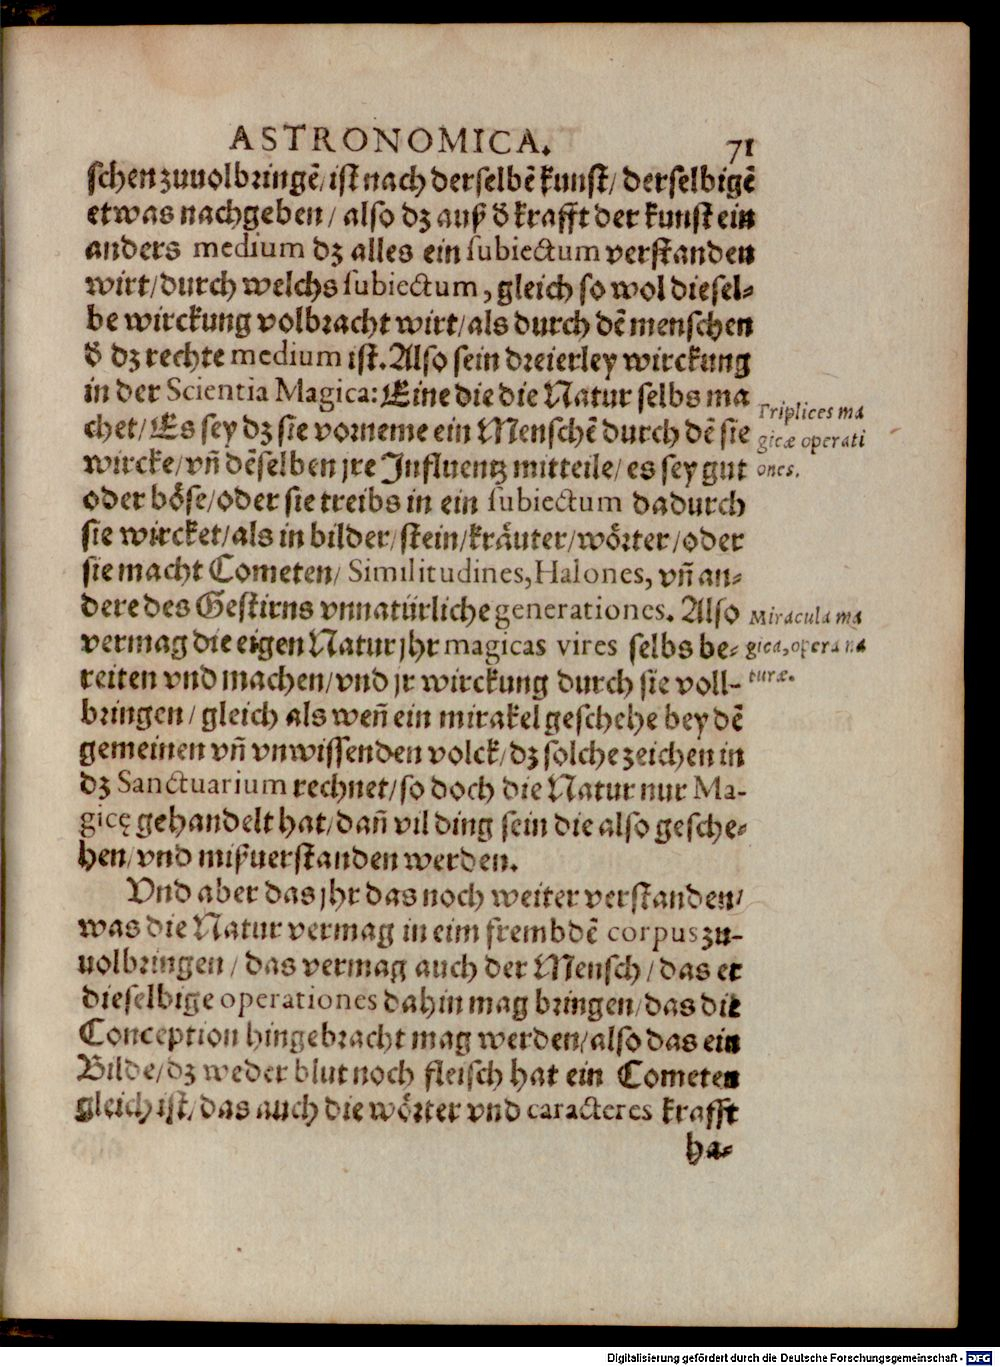 ASTRONOMICA. 71
schen zuuolbringẽ/ist nach derselbẽ kunst/ derselbigẽ
etwas nachgeben/ also dz auß ď krafft der kunst ein
anders medium dz alles ein subiectum verstanden
wirt/durch welchs subiectum, gleich so wol diesel-
be wirckung volbracht wirt/als durch dẽ menschen
ď dz rechte medium ist. Also sein dreierley wirckung
in der Scientia Magica: Eine die die Natur selbs ma
chet/Es sey dz sie vorneme ein Menschẽ durch dẽ sie
wircke/vñ dẽselben jre Influentz mitteile/ es sey gut
oder böse/oder sie treibs in ein subiectum dadurch
sie wircket/als in bilder/stein/kräuter/wörter/oder
sie macht Cometen/ Similitudines, Halones, vñ an-
dere des Gestirns vnnatürliche generationes. Also
vermag die eigen Natur jhr magicas vires selbs be-
reiten vnd machen/vnd jr wirckung durch sie voll-
bringen/ gleich als weñ ein mirakel geschehe bey dẽ
gemeinen vñ vnwissenden volck/dz solche zeichen in
dz Sanctuarium rechnet/so doch die Natur nur Ma-
gicę gehandelt hat/dañ vil ding sein die also gesche-
hen/vnd mißuerstanden werden.
Vnd aber das jhr das noch weiter verstanden/
was die Natur vermag in eim frembdẽ corpus zu-
uolbringen/ das vermag auch der Mensch/das er
dieselbige operationes dahin mag bringen/das die
Conception hingebracht mag werden/also das ein
Bilde/dz weder blut noch fleisch hat ein Cometen
gleich ist/das auch die wörter vnd caracteres krafft
ha-
Triplices ma
gicæ operati
ones.
Miracula ma
gica, opera na
turæ.
Digitalisierung gefördert durch die Deutsche Forschungsgemeinschaft - DFG